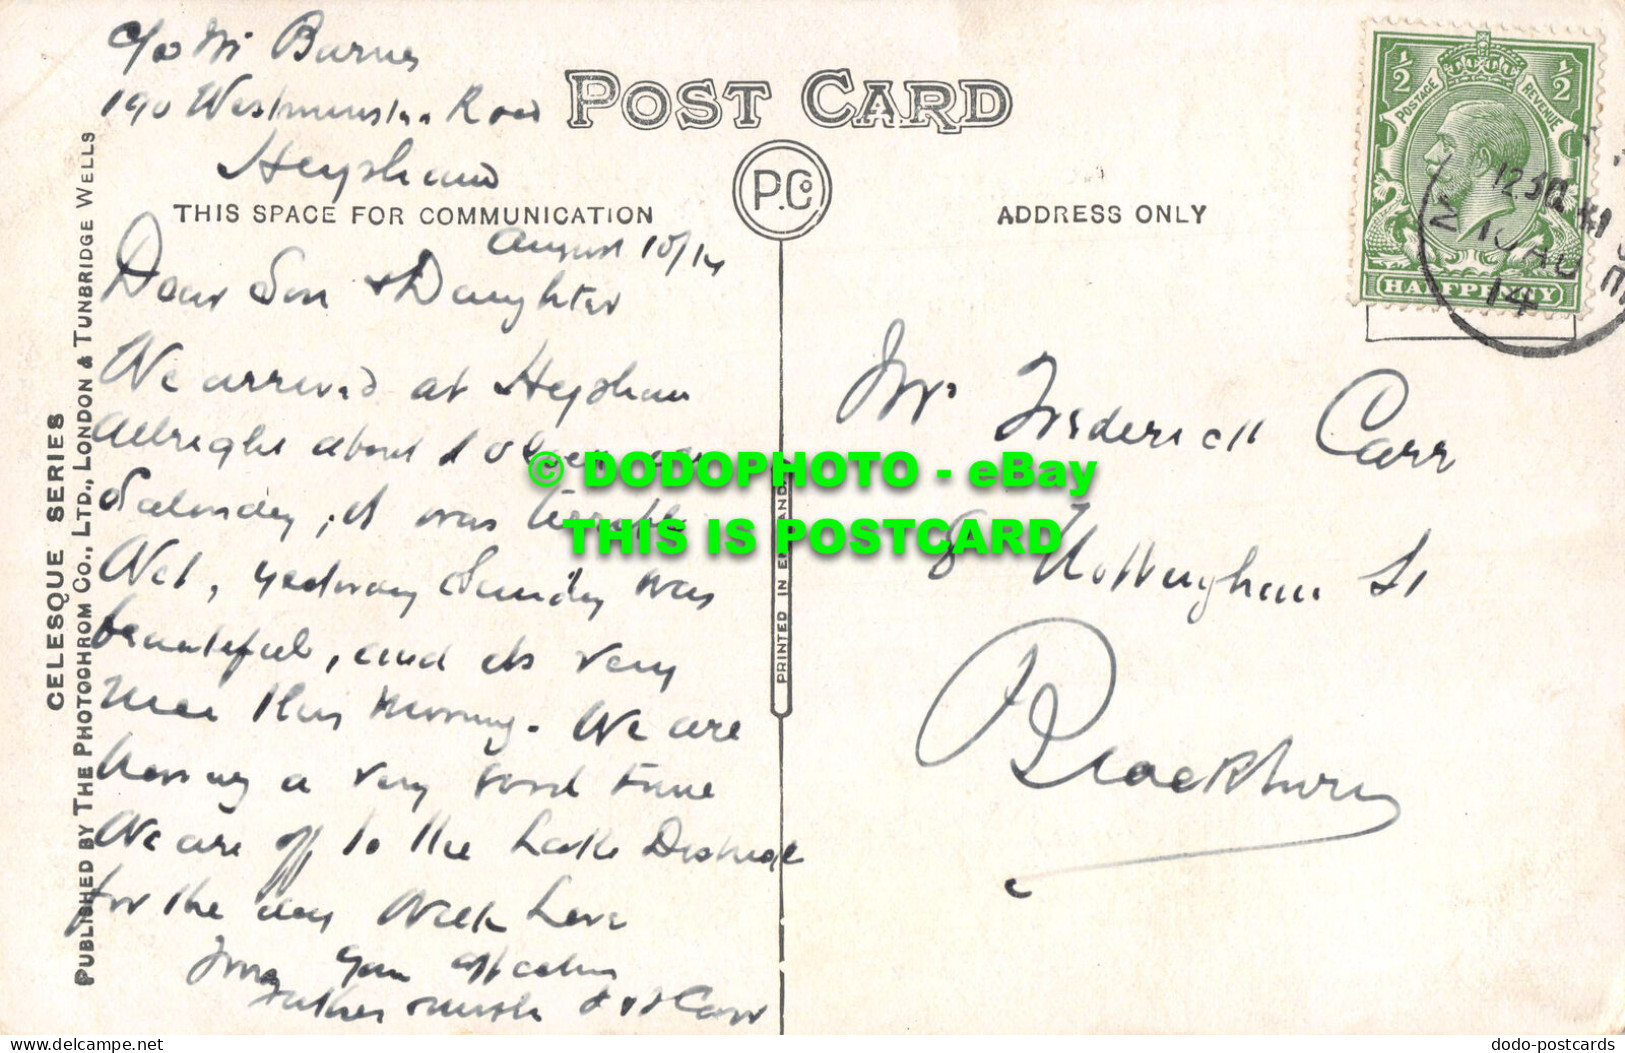 c/o Mr Burns
190 Westminster Road
Heysham
POST CARD
P. Co.
THIS SPACE FOR COMMUNICATION
ADDRESS ONLY
August 10/14
Dear Son & Daughter
We arrived at Heysham
allright about
Saturday, it was terrible
Wet, yesterday Sunday was
beautiful, and its very
nice this morning. We are
having a very good time
We are off to the Lake District
for the day With Love
from your affectionate
Father & Mother Carr
Mr Frederick Carr
8 Nottingham St
Blackburn
½ ½
POSTAGE REVENUE
HALFPENNY
12.30
10 AU
14
CELESQUE SERIES
PUBLISHED BY THE PHOTOCHROM CO., LTD., LONDON & TUNBRIDGE WELLS
PRINTED IN ENGLAND.
© DODOPHOTO - eBay
THIS IS POSTCARD
www.delcampe.net
dodo-postcards